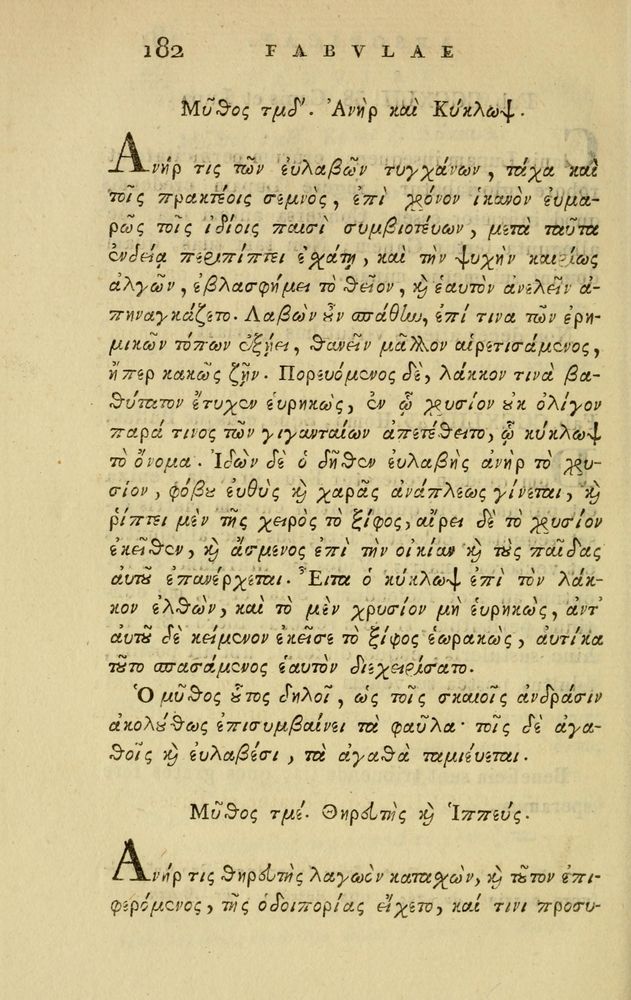 182 FABVLAE
Μῦθος τμδʹ. Ἀνὴρ καὶ Κύκλωψ.
Ἀνήρ τις τῶν ἐυλαβῶν τυγχάνων, τάχα καὶ
τοῖς πρακτέοις σεμνὸς, ἐπὶ χρόνον ἱκανὸν ἐυμα-
ρῶς τοῖς ἰδίοις παισὶ συμβιοτέυων, μετὰ ταῦτα
ἐνδείᾳ περιπίπτει ἐχάτῃ, καὶ τὴν ψυχὴν καιρίως
ἀλγῶν, ἐβλασφήμει τὸ θεῖον, ϗ ἑαυτὸν ἀνελεῖν ἀ-
πηναγκάζετο. Λαβὼν ȣ̓ν σπάθην, ἐπί τινα τῶν ἐρη-
μικῶν τόπων ἐξῄει, θανεῖν μᾶλλον αἱρετισάμενος,
ἤπερ κακῶς ζῇν. Πορευόμενος δὲ, λάκκον τινὰ βα-
θύτατον ἔτυχεν ἑυρηκὼς, ἐν ᾧ χρυσίον ȣ̓κ ὀλίγον
παρά τινος τῶν γιγανταίων ἀπετέθειτο, ᾧ κύκλωψ
τὸ ὄνομα. Ἰδὼν δὲ ὁ δῆθεν ἐυλαβὴς ἀνὴρ τὸ χρυ-
σίον, φόβȣ ἐυθὺς ϗ χαρᾶς ἀνάπλεως γίνεται, ϗ
ῥίπτει μὲν τῆς χειρὸς τὸ ξίφος, αἴρει δὲ τὸ χρυσίον
ἐκεῖθεν, ϗ ἄσμενος ἐπὶ τὴν οἰκίαν ϗ τȣ̀ς παῖδας
ἀυτȣ͂ ἐπανέρχεται. Ἔιτα ὁ κύκλωψ ἐπὶ τὸν λάκ-
κον ἐλθὼν, καὶ τὸ μὲν χρυσίον μὴ ἑυρηκὼς, ἀντ᾽
ἀυτȣ͂ δὲ κείμενον ἐκεῖσε τὸ ξίφος ἑωρακὼς, ἀυτίκα
τȣ͂το σπασάμενος ἑαυτὸν διεχειρίσατο.
Ὁ μῦθος ȣ̔͂τος δηλοῖ, ὡς τοῖς σκαιοῖς ἀνδράσιν
ἀκολȣ́θως ἐπισυμβαίνει τὰ φαῦλα· τοῖς δὲ ἀγα-
θοῖς ϗ ἐυλαβέσι, τὰ ἀγαθὰ ταμιέυεται.
Μῦθος τμέ. Θηρευτὴς ϗ Ἱππεύς.
Ἀνήρ τις θηρευτὴς λαγωὸν καταχὼν, ϗ τȣ͂τον ἐπι-
φερόμενος, τῆς ὁδοιπορίας εἴχετο, καί τινι προσυ-